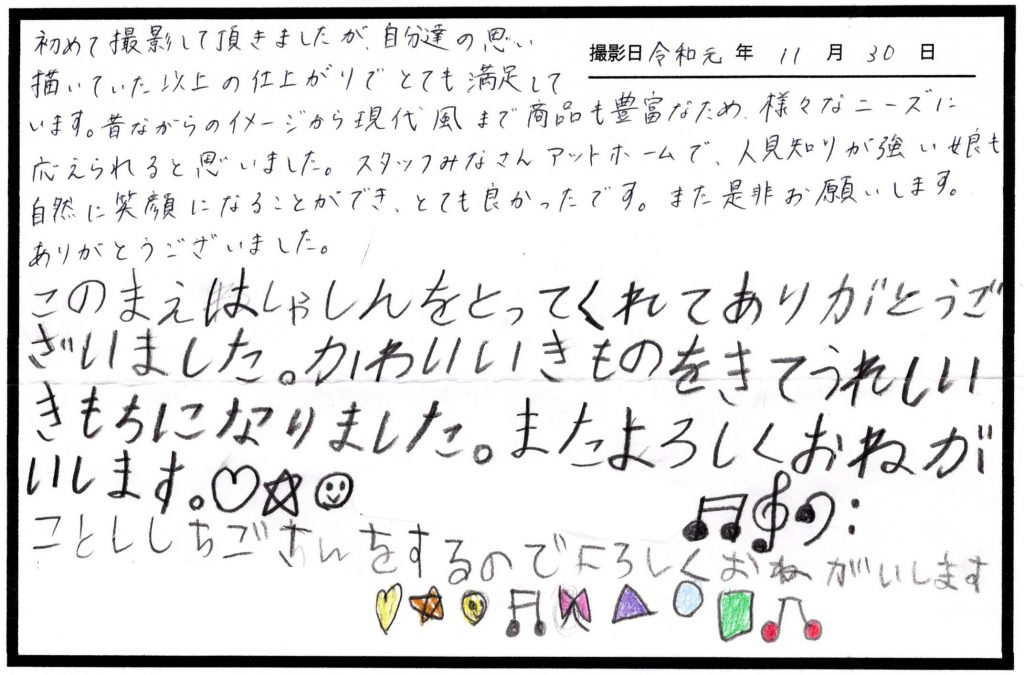 撮影日 令和元 年 11 月 30 日
初めて撮影して頂きましたが、自分達の思い
描いていた以上の仕上がりでとても満足して
います。昔ながらのイメージから現代風まで商品も豊富なため、様々なニーズに
応えられると思いました。スタッフみなさんアットホームで、人見知りが強い娘も
自然に笑顔になることができ、とても良かったです。また是非お願いします。
ありがとうございました。
このまえはしゃしんをとってくれてありがとうご
ざいました。かわいいきものをきてうれしい
きもちになりました。またよろしくおねが
いします。
ことししちごさんをするのでよろしくおねがいします